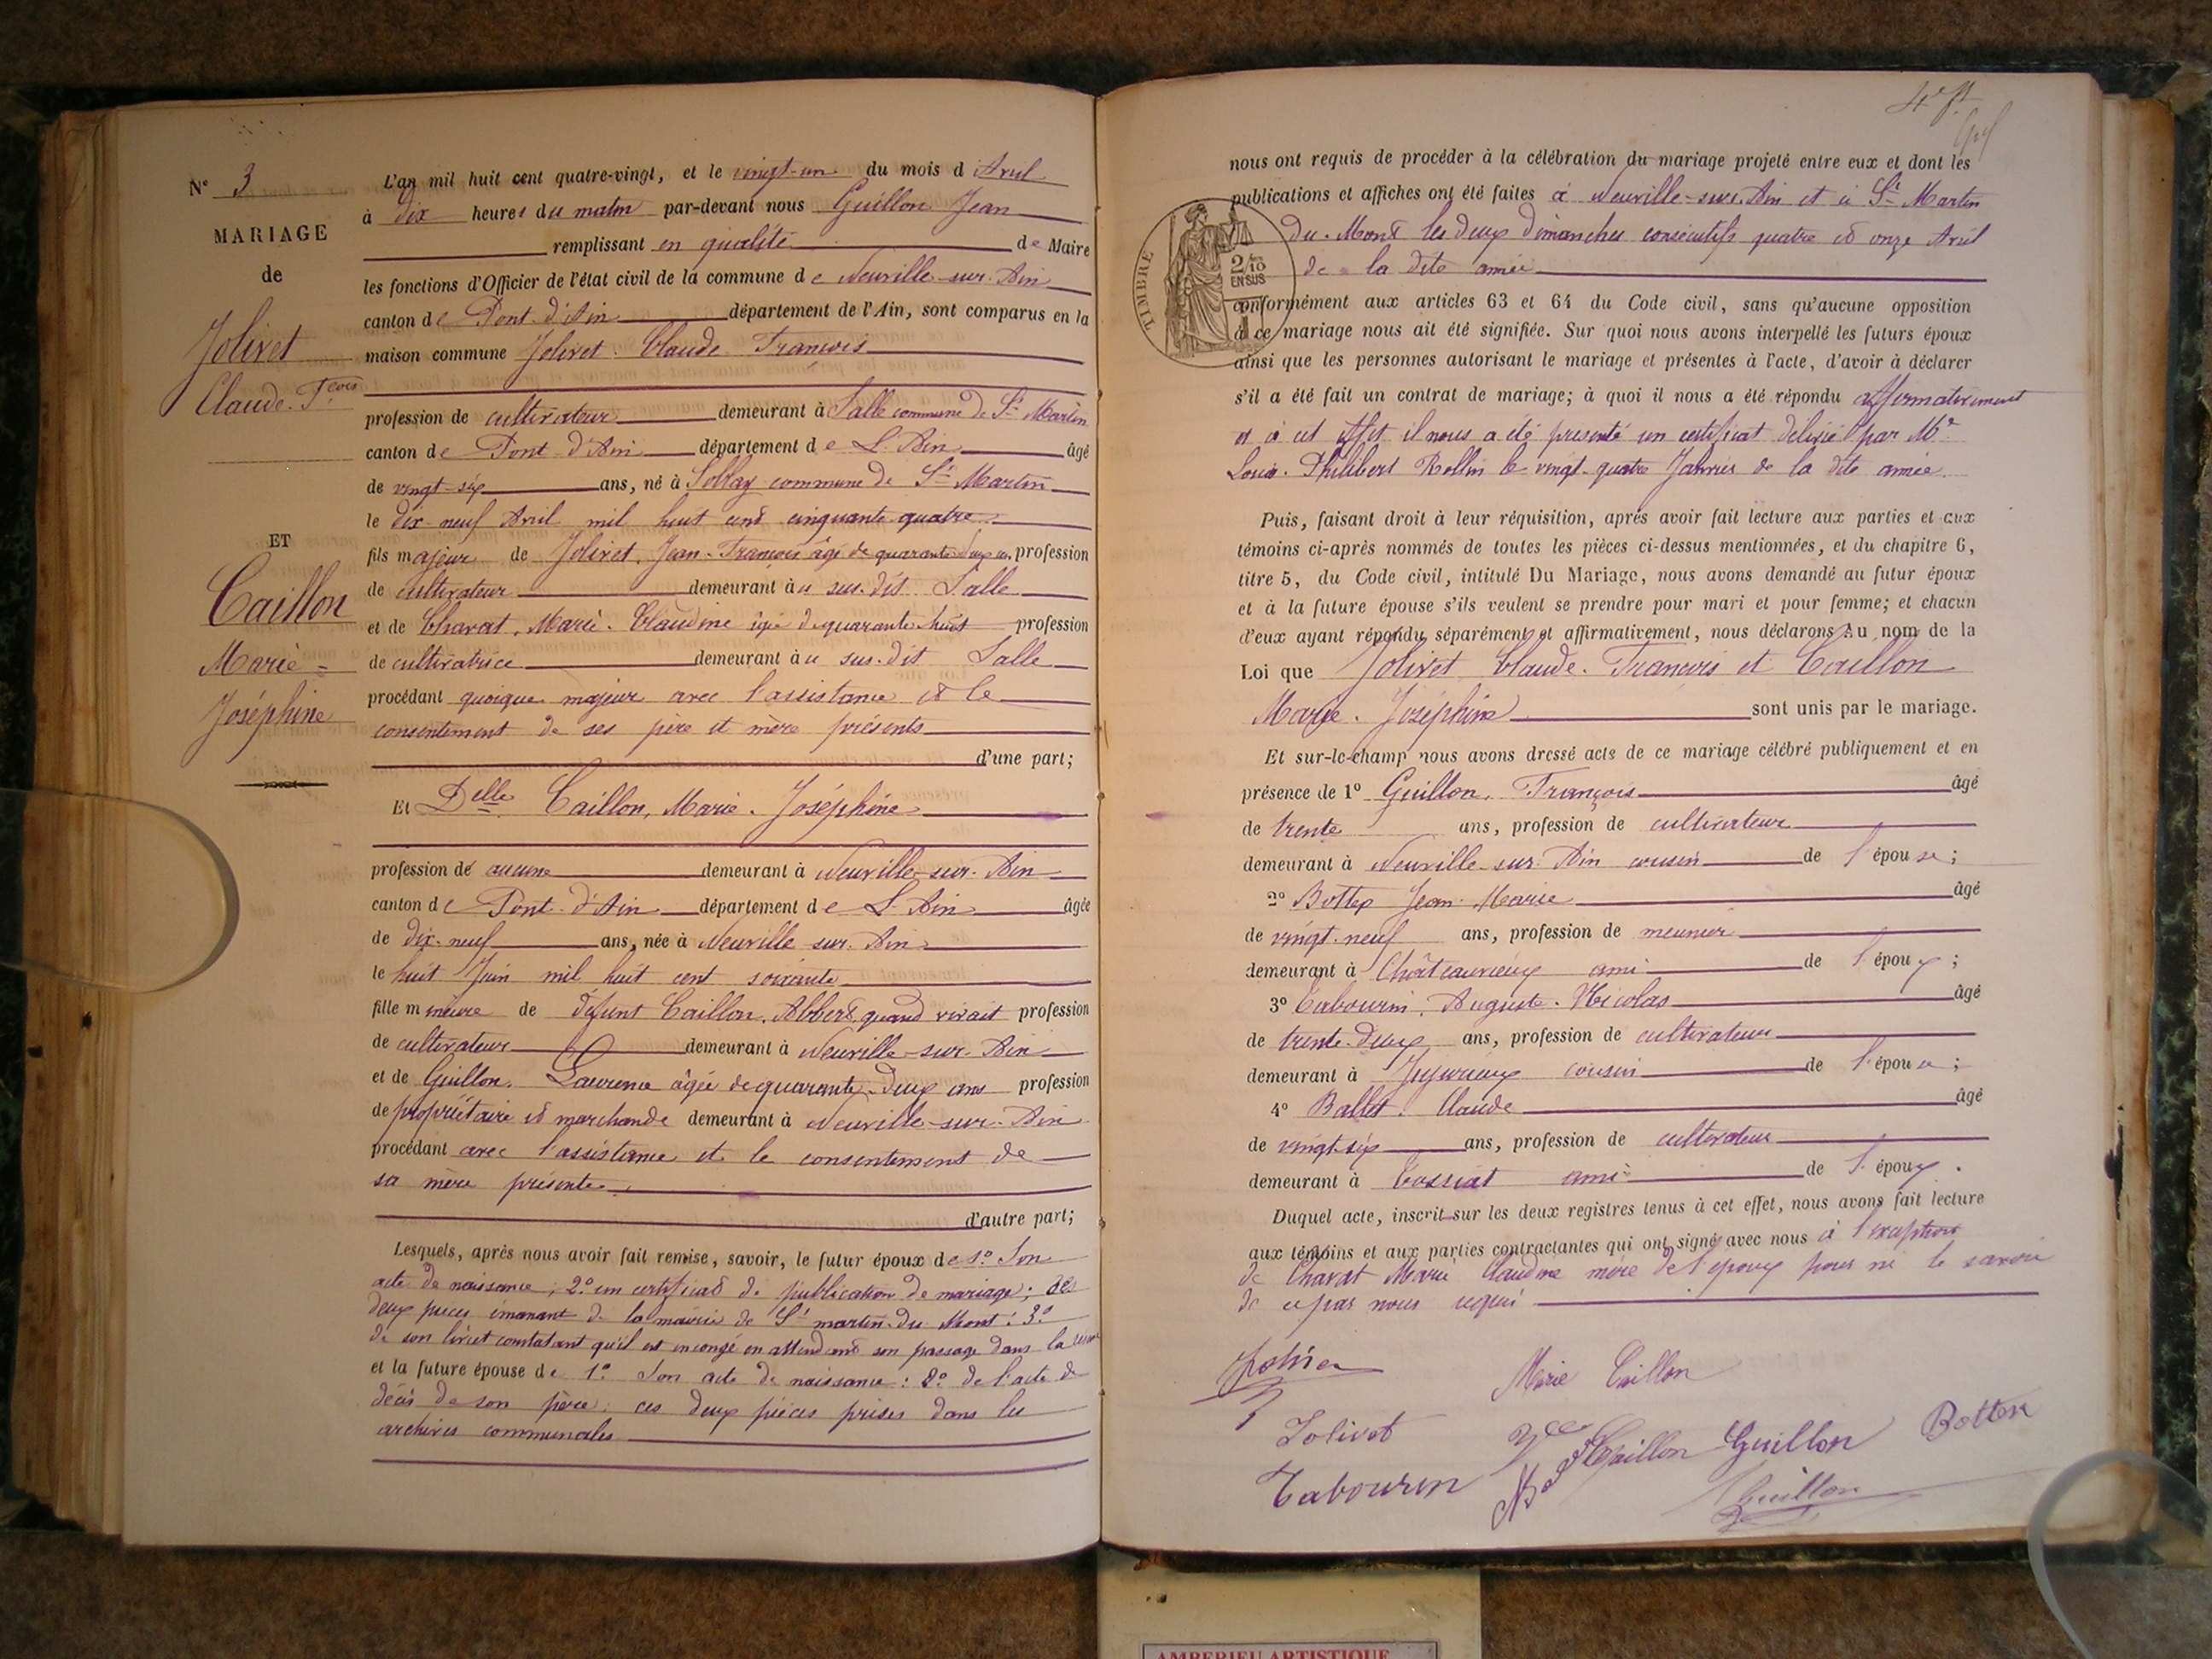 N° 3
MARIAGE
de
Jolivet
Claude Fçois
ET
Caillon
Marie
Joséphine
L'an mil huit cent quatre-vingt, et le vingt-un du mois d Avril
à dix heures du matin par-devant nous Guillon Jean
remplissant en qualité de Maire
les fonctions d'Officier de l'état civil de la commune de Neuville-sur-Ain
canton de Pont-d'Ain département de l'Ain, sont comparus en la
maison commune Jolivet Claude François
profession de cultivateur demeurant à Salle commune de St Martin
canton de Pont-d'Ain département de L'Ain âgé
de vingt-six ans, né à commune de St Martin
le dix-neuf Avril mil huit cent cinquante-quatre
fils majeur de Jolivet, Jean-François âgé de quarante deux ans profession
de cultivateur demeurant au sus-dit Salle
et de Charat, Marie-Claudine âgée de quarante-huit profession
de cultivatrice demeurant au sus-dit Salle
procédant quoique majeur avec l'assistance et le
consentement de ses père et mère présents
d'une part;
Et Delle Caillon, Marie-Joséphine
profession de aucune demeurant à Neuville-sur-Ain
canton de Pont-d'Ain département de L'Ain âgée
de dix-neuf ans, née à Neuville-sur-Ain
le huit Juin mil huit cent soixante
fille mineure de défunt Caillon, Albert, quand vivait profession
de cultivateur demeurant à Neuville-sur-Ain
et de Guillon, Laurence âgée de quarante-deux ans profession
de propriétaire et marchande demeurant à Neuville-sur-Ain
procédant avec l'assistance et le consentement de
sa mère présente
d'autre part;
Lesquels, après nous avoir fait remise, savoir, le futur époux de 1° Son
acte de naissance; 2° un certificat de publication de mariage; ces
deux pièces émanant de la mairie de St martin-du-Mont: 3°
de son livret constatant qu'il est en congé en attendant son passage dans la
et la future épouse de 1° Son acte de naissance: 2° de l'acte de
décès de son père: ces deux pièces prises dans les
archives communales
4e ft
TIMBRE
2/10
EN SUS
nous ont requis de procéder à la célébration du mariage projeté entre eux et dont les
publications et affiches ont été faites à Neuville-sur-Ain et à St Martin
du-Mont les deux dimanches consécutifs quatre et onze Avril
de la dite année
conformément aux articles 63 et 64 du Code civil, sans qu'aucune opposition
à ce mariage nous ait été signifiée. Sur quoi nous avons interpellé les futurs époux
ainsi que les personnes autorisant le mariage et présentes à l'acte, d'avoir à déclarer
s'il a été fait un contrat de mariage; à quoi il nous a été répondu affirmativement
et à cet effet il nous a été présenté un certificat délivré par Mr
Louis-Philibert Rollin le vingt-quatre Janvier de la dite année
Puis, faisant droit à leur réquisition, après avoir fait lecture aux parties et aux
témoins ci-après nommés de toutes les pièces ci-dessus mentionnées, et du chapitre 6,
titre 5, du Code civil, intitulé Du Mariage, nous avons demandé au futur époux
et à la future épouse s'ils veulent se prendre pour mari et pour femme; et chacun
d'eux ayant répondu séparément et affirmativement, nous déclarons Au nom de la
Loi que Jolivet Claude-François et Caillon
Marie-Joséphine sont unis par le mariage.
Et sur-le-champ nous avons dressé acte de ce mariage célébré publiquement et en
présence de 1° Guillon, François âgé
de trente ans, profession de cultivateur
demeurant à Neuville-sur-Ain cousin de l'épouse;
2° Bottex Jean-Marie âgé
de vingt-neuf ans, profession de meunier
demeurant à Châteauvieux ami de l'époux;
3° Tabourin, Auguste-Nicolas âgé
de trente-deux ans, profession de cultivateur
demeurant à Jujurieux cousin de l'épouse;
4° Ballet, Claude âgé
de vingt-six ans, profession de cultivateur
demeurant à Tossiat ami de l'époux.
Duquel acte, inscrit sur les deux registres tenus à cet effet, nous avons fait lecture
aux témoins et aux parties contractantes qui ont signé avec nous à l'exception
de Charat Marie Claudine mère de l'époux pour ne le savoir
de ce par nous requis
Marie Caillon
Jolivet
Vce Caillon Guillon Bottex
Tabourin
Guillon
AMBERIEU ARTISTIQUE